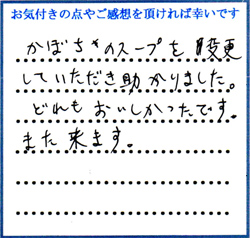 お気付きの点やご感想を頂ければ幸いです
かぼちゃのスープを変更
していただき助かりました。
どれもおいしかったです。
また来ます。